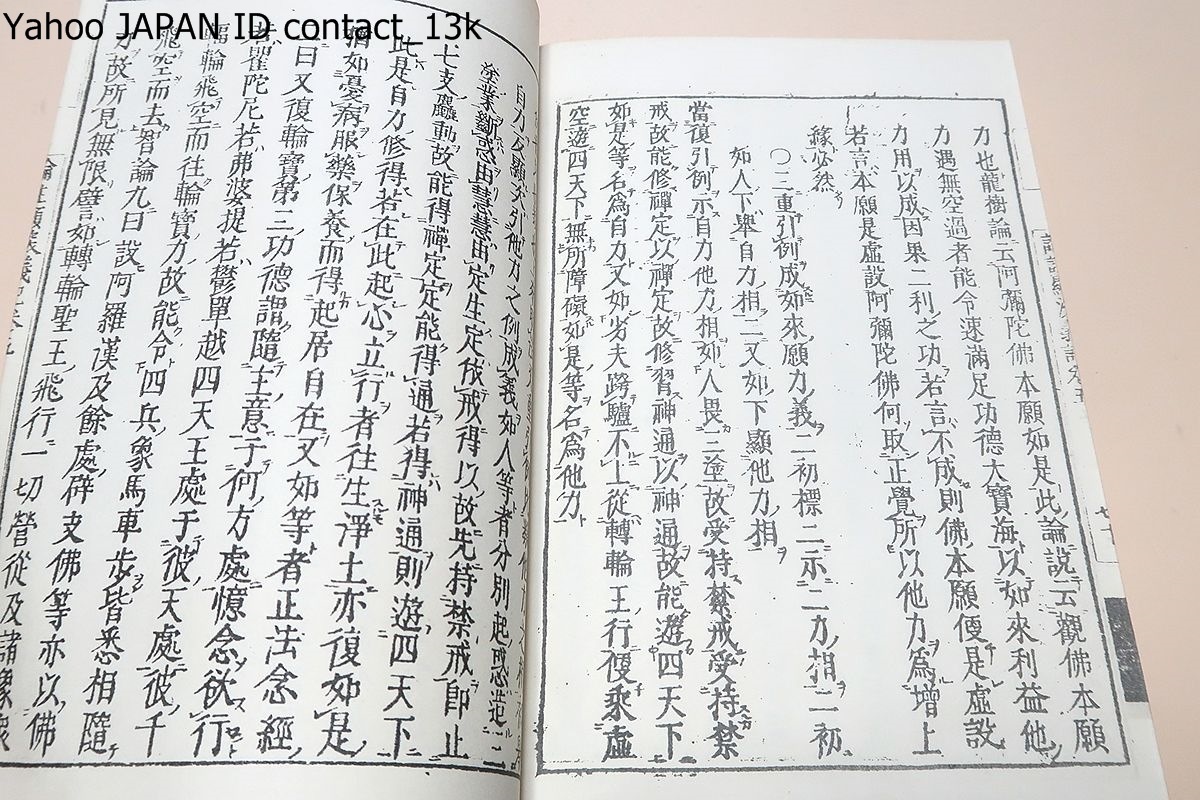 Yahoo JAPAN ID contact_13k
力也龍樹論云阿彌陀佛本願如是此論說云觀佛本願
力遇無空過者能令速滿足功德大寶海以如來利益他
力用以成因果二利之功若言不成則佛本願便是虛設
若言本願是虛設阿彌陀佛何取正覺所以他力為增上
緣必然
〇三重引例成如來願力義二初標二示二力相二初
如人下舉自力相二又如下顯他力相
當復引例示自力他力相如人畏三塗故受持禁戒受持禁
戒故能修禪定以禪定故修習神通以神通故能遊四天下
如是等名為自力又如劣夫跨驢不上從轉輪王行便乘虛
空遊四天下無所障礙如是等名為他力
自力次顯夫引他力之例成義如人等者分別起惑造三
塗業斷惑由慧慧由定生定依戒得以故先持禁戒即止
七支麤動故能得禪定定能得通若得神通則遊四天下
此是自力修得若在此起心立行者往生淨土亦復如是
猶如憂病服藥保養而得起居自在又如等者正法念經
曰又復輪寶第三功德謂隨王意于何方處憶念欲行
若瞿陀尼若弗婆提若鬱單越四天王處于彼天處彼千
輻輪飛空而往輪寶力故能令四兵象馬車步皆悉相隨
飛空而去智論九曰說阿羅漢及餘處辟支佛等亦以佛
力故所見無限譬如轉輪聖王飛行一切營從及諸象